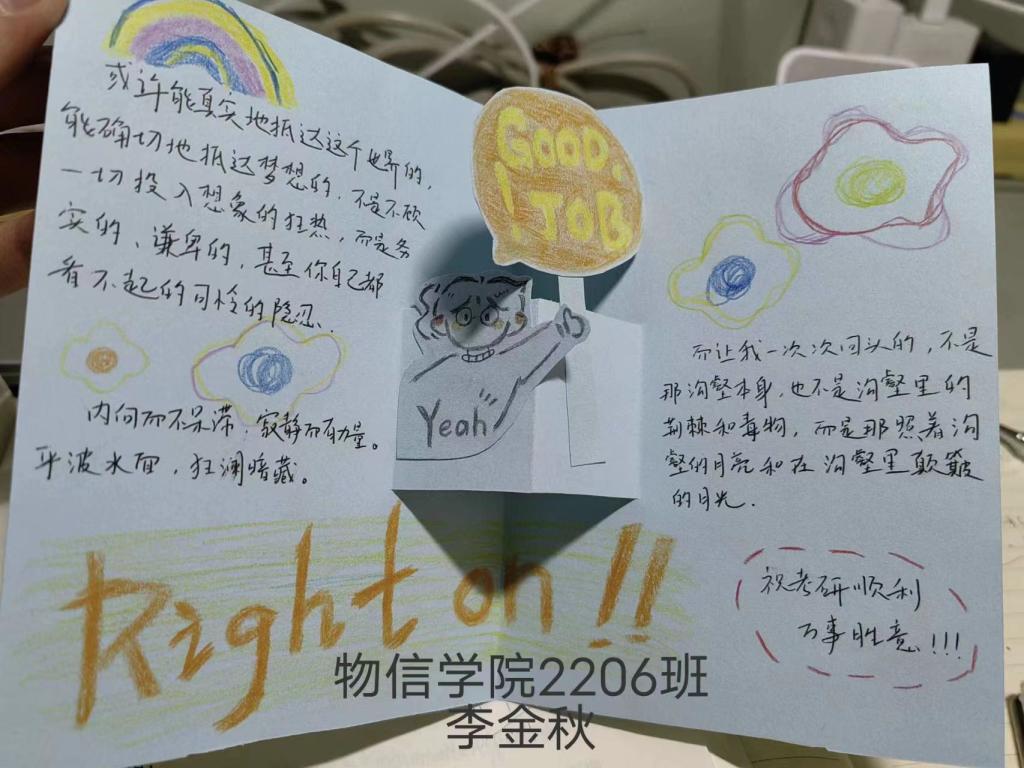 或许能真实地抵达这个世界的,
能确切地抵达梦想的,不是不顾
一切投入想象的狂热,而是务
实的、谦卑的,甚至你自己都
看不起的可怜的隐忍.
内向而不呆滞,寂静而有力量。
平波水面,狂澜暗藏。
GOOD
! JOB
Yeah
而让我一次次回头的,不是
那沟壑本身,也不是沟壑里的
荆棘和毒物,而是那照着沟
壑的月亮和在沟壑里颠簸
的月光.
Right on!!
祝考研顺利
万事胜意!!!
物信学院2206班
李金秋